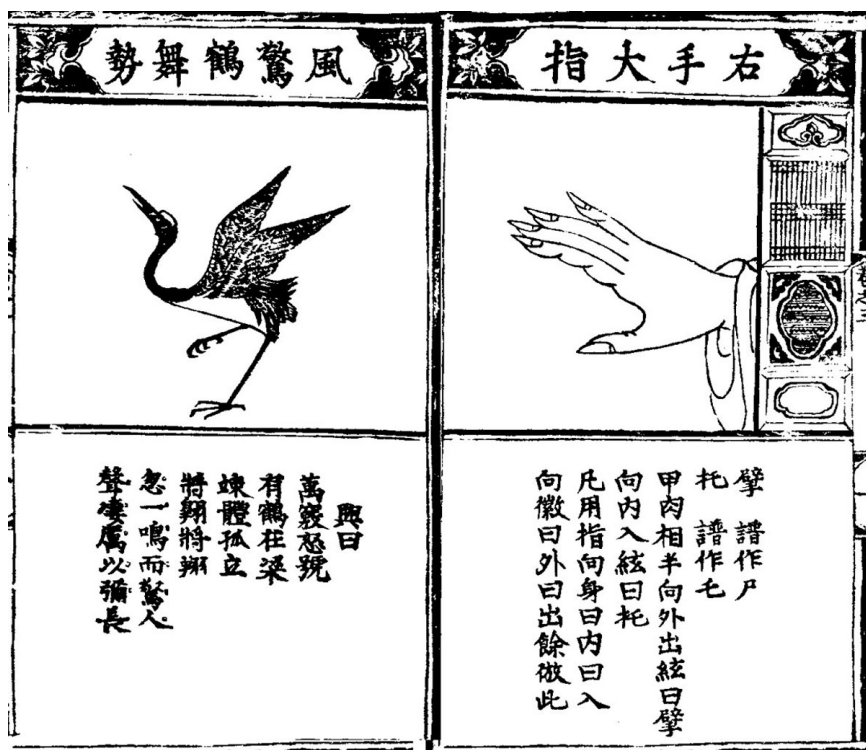 右手大指
擘 譜作尸
托 譜作乇
甲肉相半向外出絃曰擘
向内入絃曰托
凡用指向身曰内曰入
向徽曰外曰出餘倣此
風驚鶴舞勢
興曰
萬竅怒號
有鶴在梁
竦體孤立
將翱將翔
忽一鳴而驚人
聲凄厲以彌長